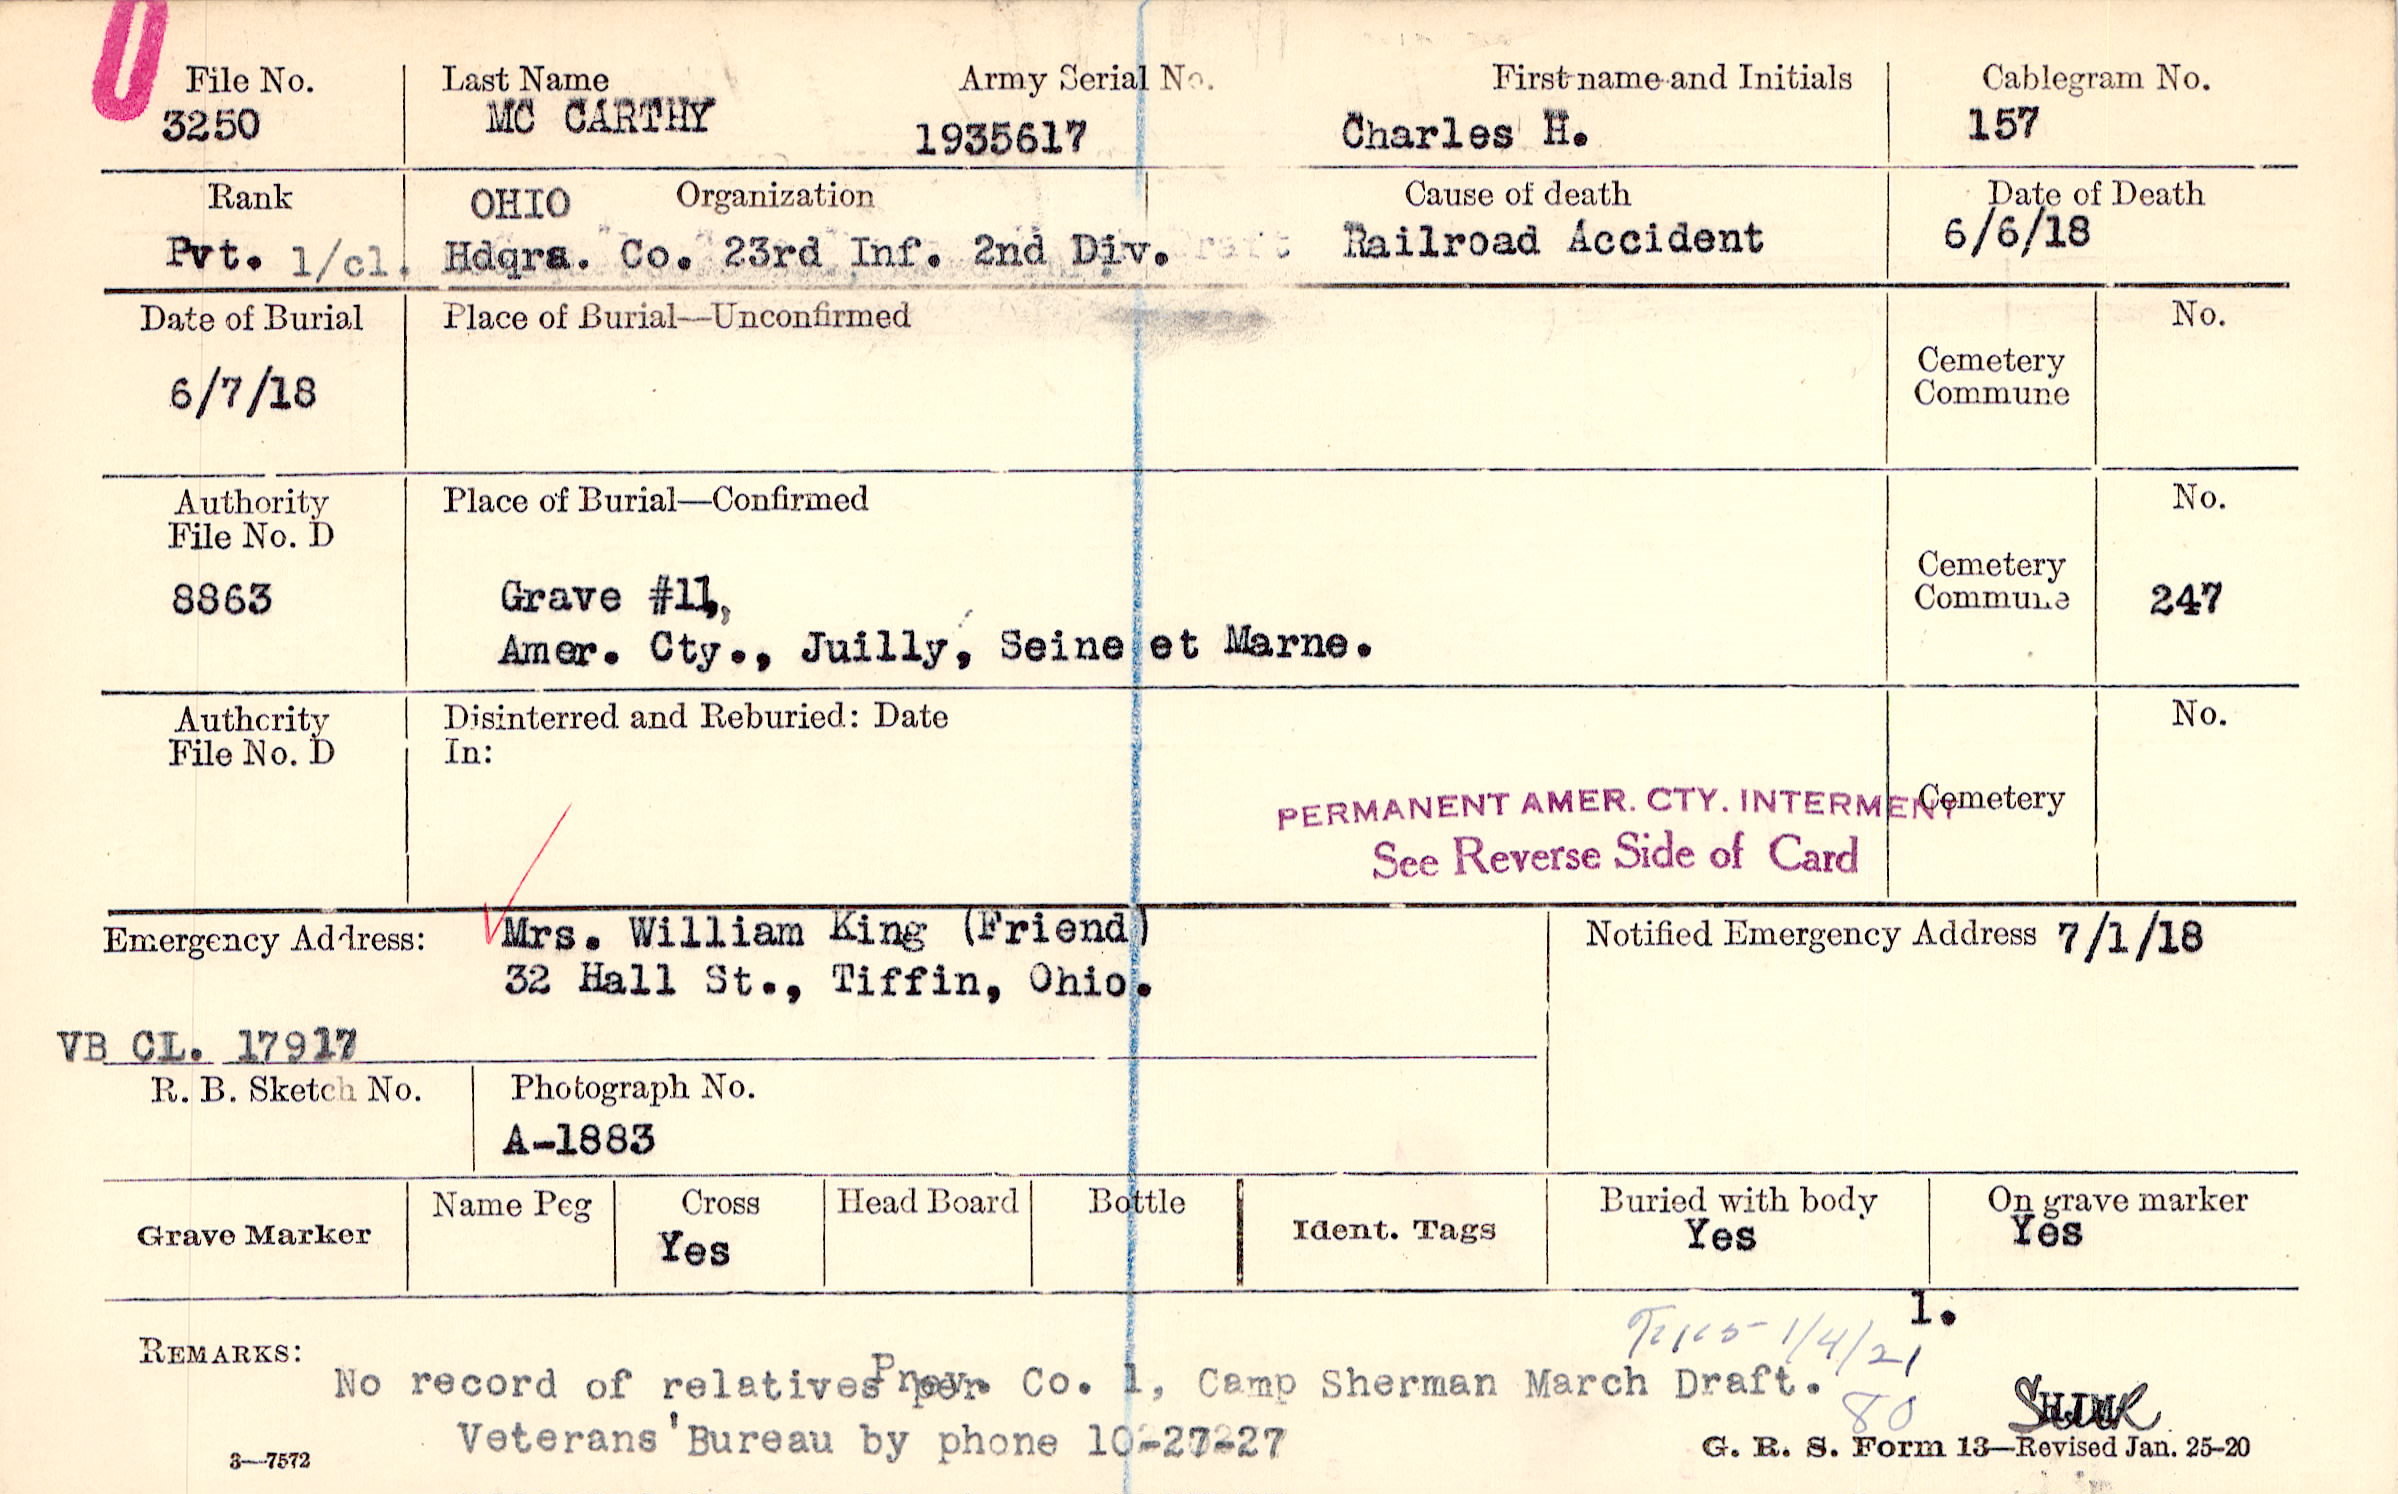 File No. Last Name Army Serial No. First name and Initials Cablegram No.
3250 MC CARTHY 1935617 Charles H. 157
Rank OHIO Organization Cause of death Date of Death
Pvt. 1/cl. Hdqrs. Co. 23rd Inf. 2nd Div. Railroad Accident 6/6/18
Date of Burial Place of Burial—Unconfirmed No.
6/7/18 Cemetery
Commune
Authority Place of Burial—Confirmed No.
File No. D
8863 Grave #11, Cemetery
Commune 247
Amer. Cty., Juilly, Seine et Marne.
Authority Disinterred and Reburied: Date No.
File No. D In:
PERMANENT AMER. CTY. INTERMENT Cemetery
See Reverse Side of Card
Emergency Address: Mrs. William King (Friend) Notified Emergency Address 7/1/18
32 Hall St., Tiffin, Ohio.
VB CL. 17917
R. B. Sketch No. Photograph No.
A-1883
Grave Marker Name Peg Cross Head Board Bottle Ident. Tags Buried with body On grave marker
Yes Yes Yes
1.
1/4/21
REMARKS:
No record of relatives Prev. Co. 1, Camp Sherman March Draft.
80
Veterans' Bureau by phone 10-27-27
3—7572 G. R. S. Form 13—Revised Jan. 25-20